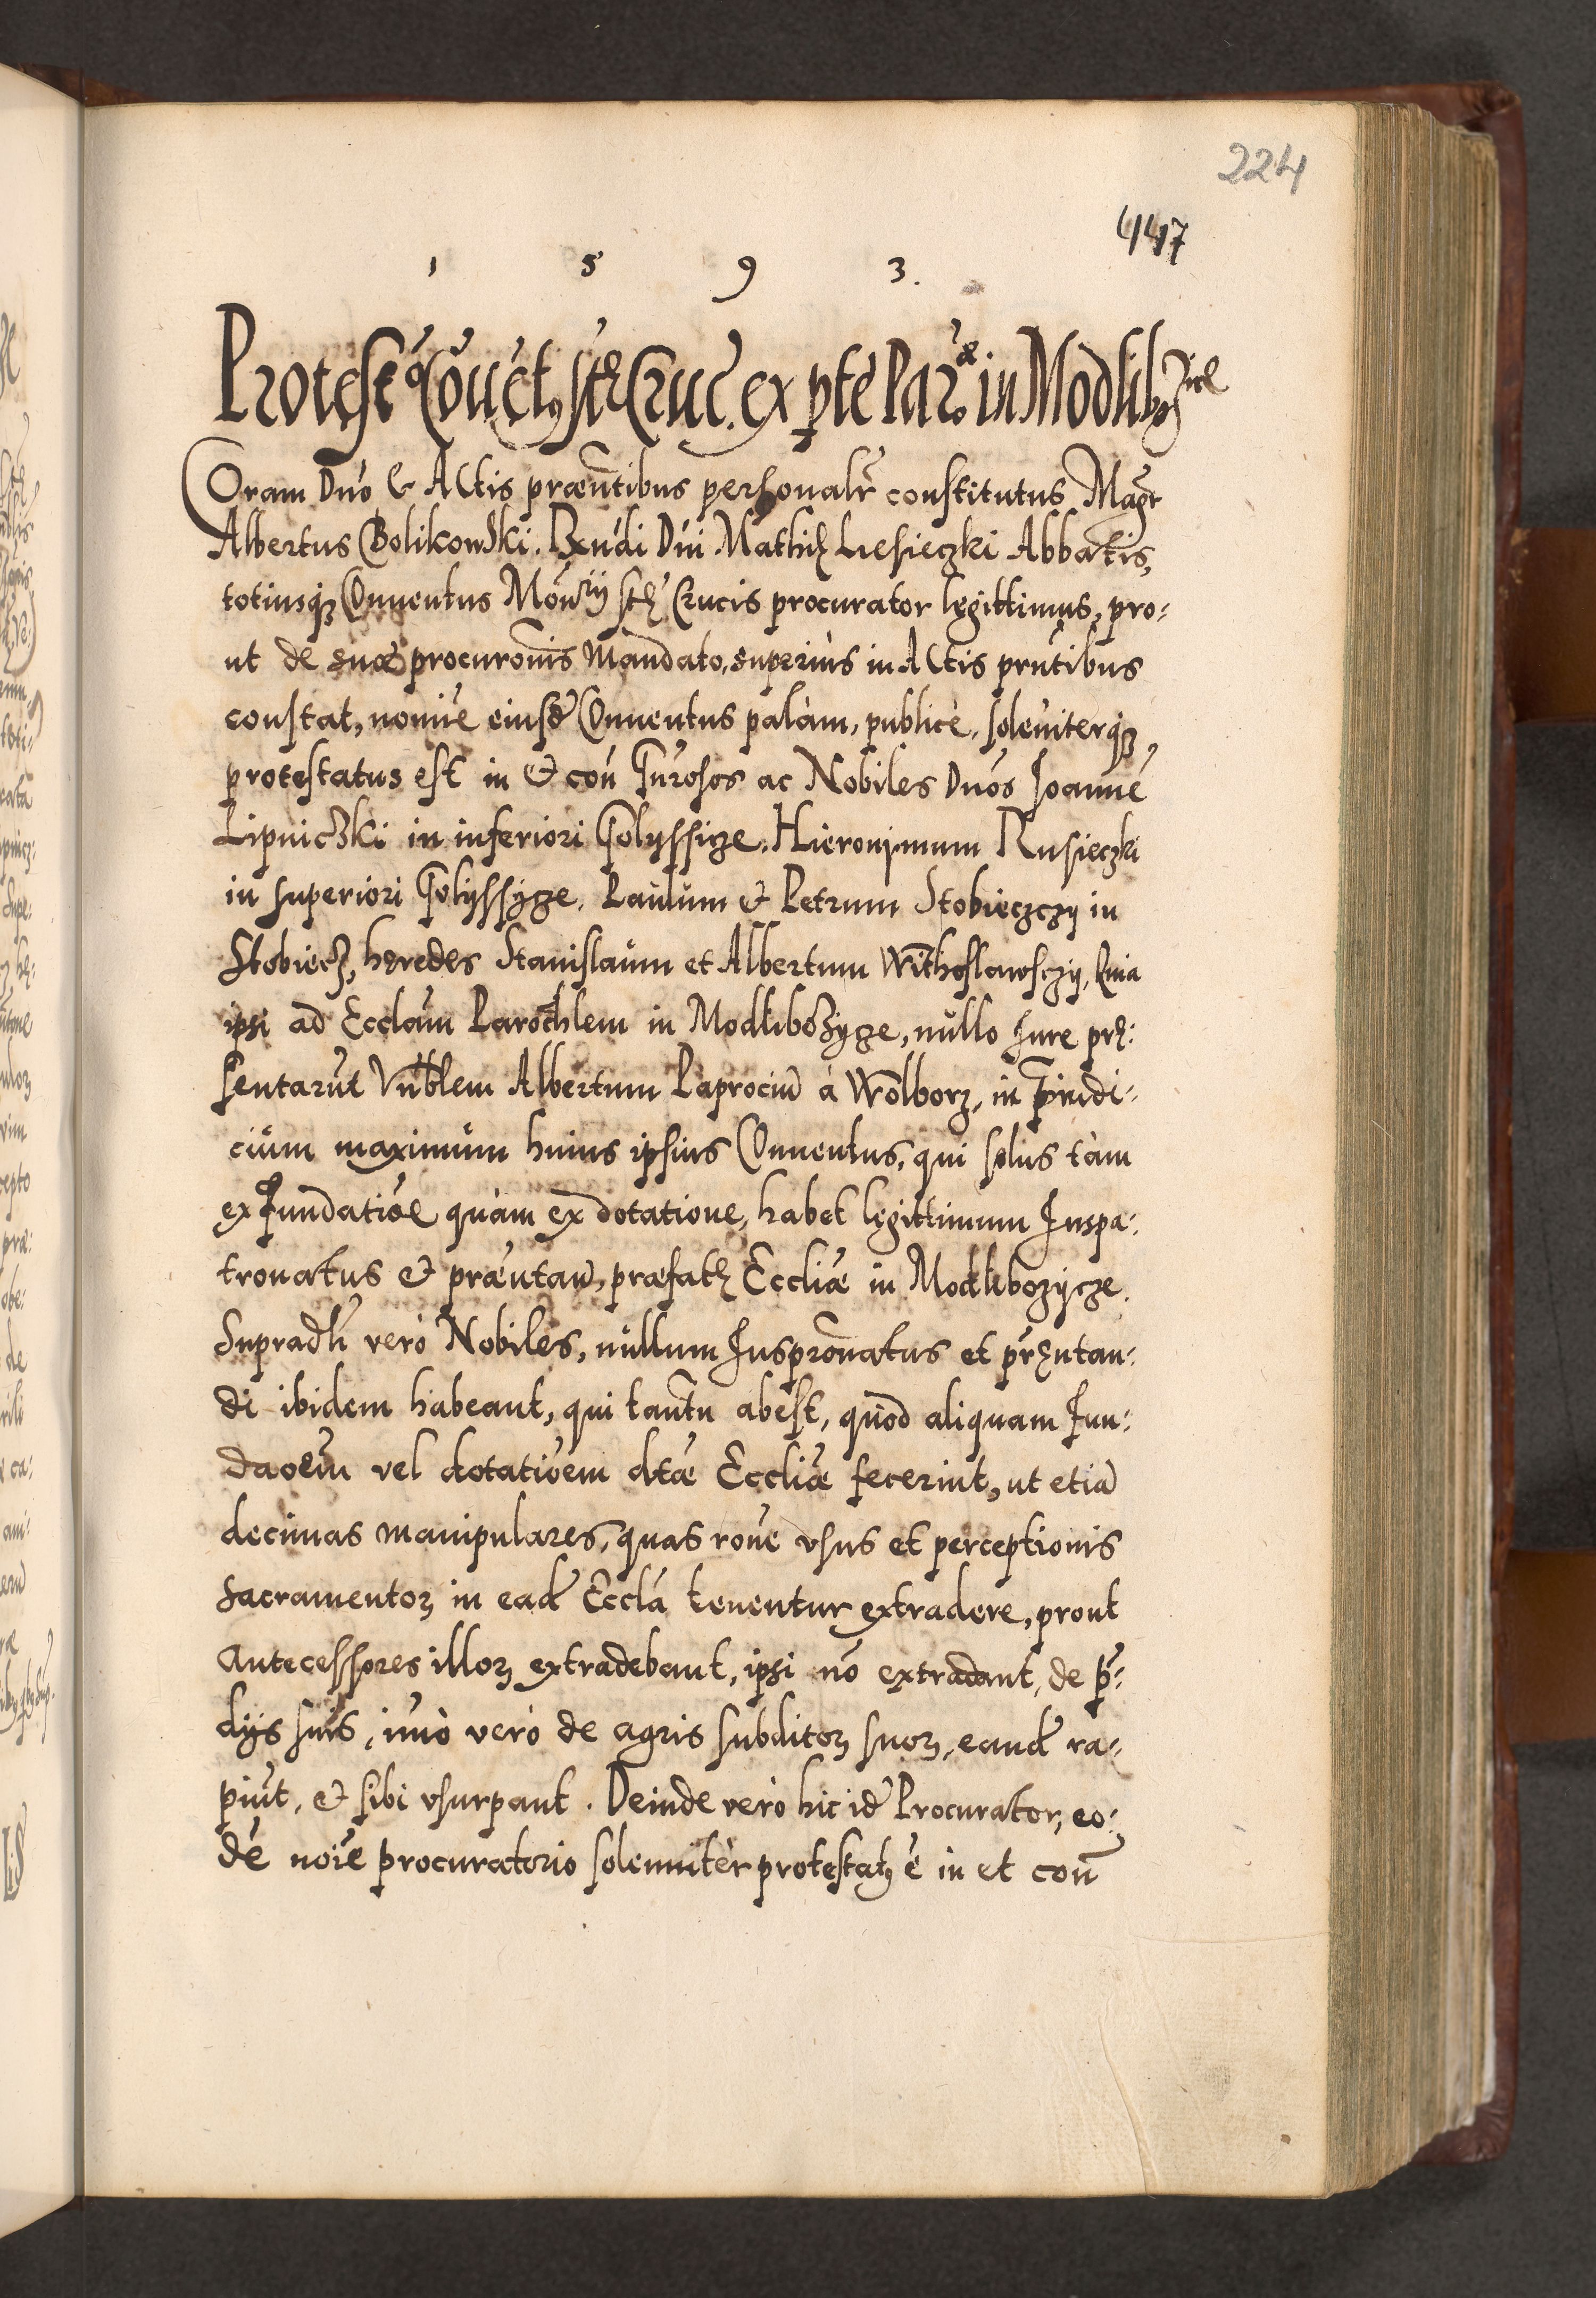 224
447
1 5 9 3.
Protestō Cōuētꝯ stę Cruc̄. ex p̱te Par:æ in Modlibozice
Coram Dn̄o & Actis præn̄tibus personalr̄ constitutus Magr̄
Albertus Bolikowski. Rn̄di Dn̄i Mathię Liesieczki Abbatis,
totiusqꝫ Conuentus Mōnrÿ stę Crucis procurator legittimus, pro:
ut de suæ procurōnis Mandato, superiùs in Actis prn̄tibus
constat, nomīe eiusdē Conuentus palàm, publicè, solēniterqꝫ
protestatus est in & con̄ Gn̄rosos ac Nobiles Dn̄os Joannē
Lipniczki in inferiori Golyssicze. Hieronymum Rusieczki
in superiori Golyssycze. Paulum & Petrum Stobieczczy in
Stobiecz, hęredes Stanislaum et Albertum Withoslawsczy, Quia
ipsi ad Ecclām Parochlem in Modlibozycze, nullo Jure prę:
sentarūt Vn̄blem Albertum Paprociū à Wolborz, in p̄iudi:
cium maximum huius ipsius Conuentus, qui solus tàm
ex Fundatiōe quàm ex dotatione, habet legittimum Juspa:
tronatus & præntan̄, præfatę Eccliæ in Modlibozycze.
Supradti verò Nobiles, nullum Juspr̄onatus et pręn̄tan:
di ibidem habeant, qui tantū abest, quòd aliquam Fun:
daōem vel dotatiōem dtæ Eccliæ fecerint, ut etiā
decimas manipulares, quas rōne vsus et perceptionis
sacramentoꝝ in eadē Ecclā tenentur extradere, prout
Antecessores illoꝝ extradebant, ipsi nō extradant, de p̄:
dijs suis, imò verò de agris subditoꝝ suoꝝ, easdē ra:
piūt, & sibi vsurpant. Deinde verò hic idē Procurator, eo:
dē noīe procuratorio solenniter protestatꝯ ē in et con̄